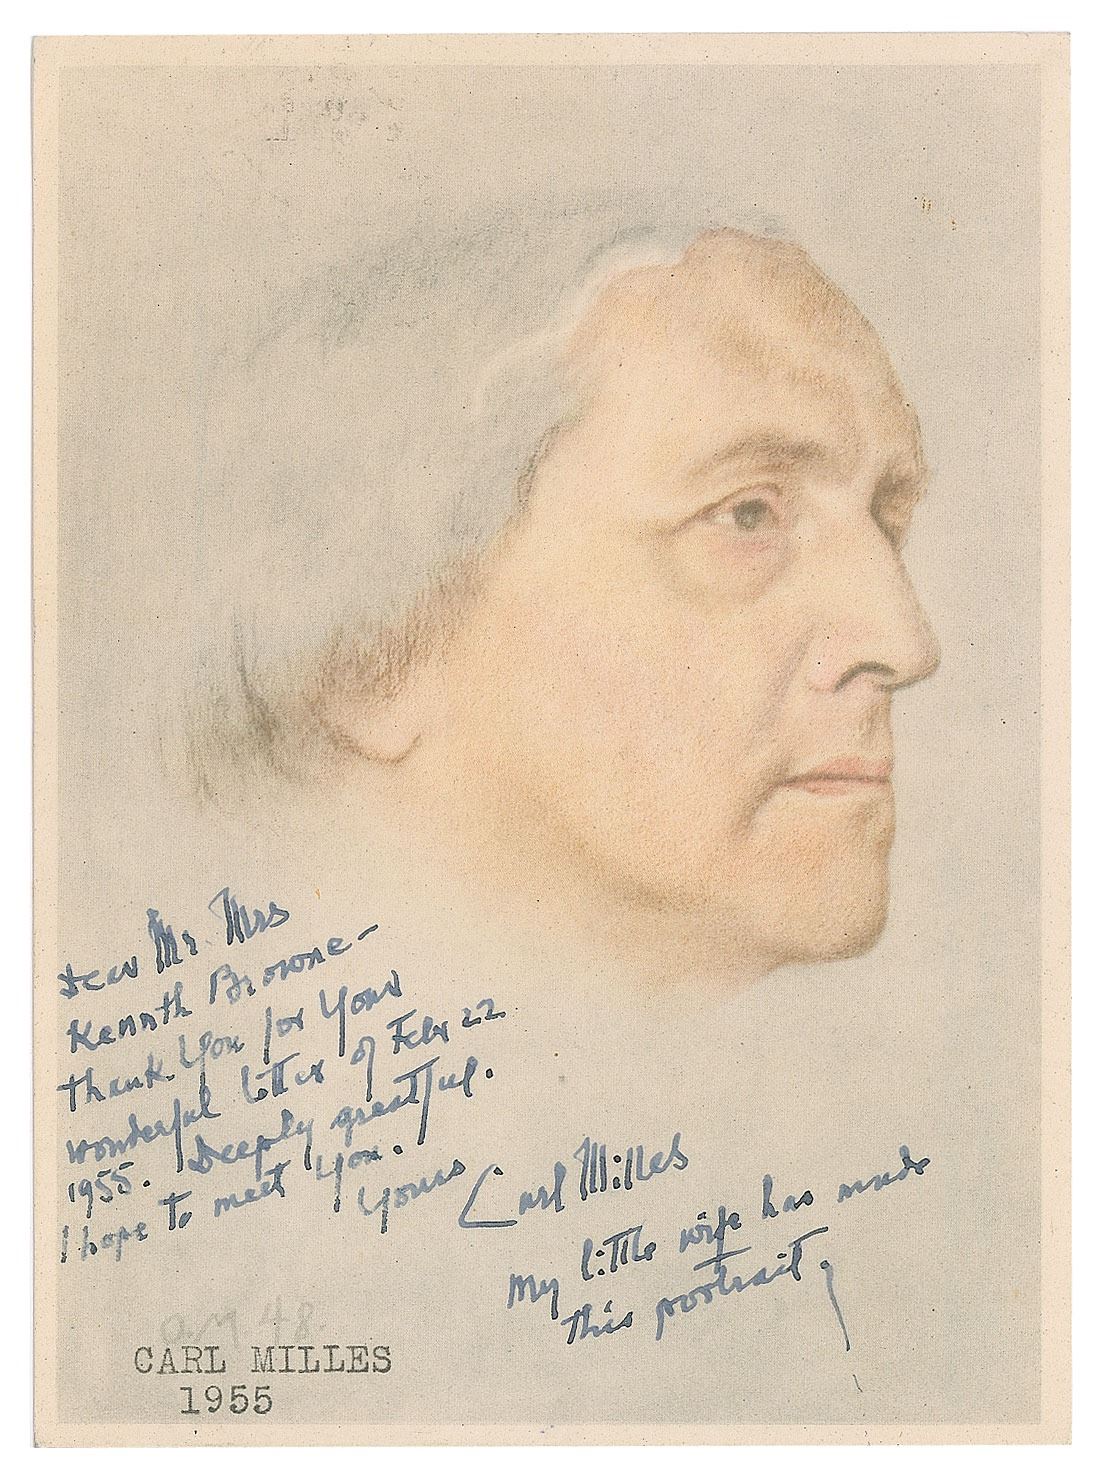 Dear Mr. Mrs
Kennth Browne –
thank You for Your
wonderful letter of Febr 22.
1955. Deeply greatful.
I hope to meet You.
Yours Carl Milles
My little wife has made
this portrait
O.M 48
CARL MILLES
1955